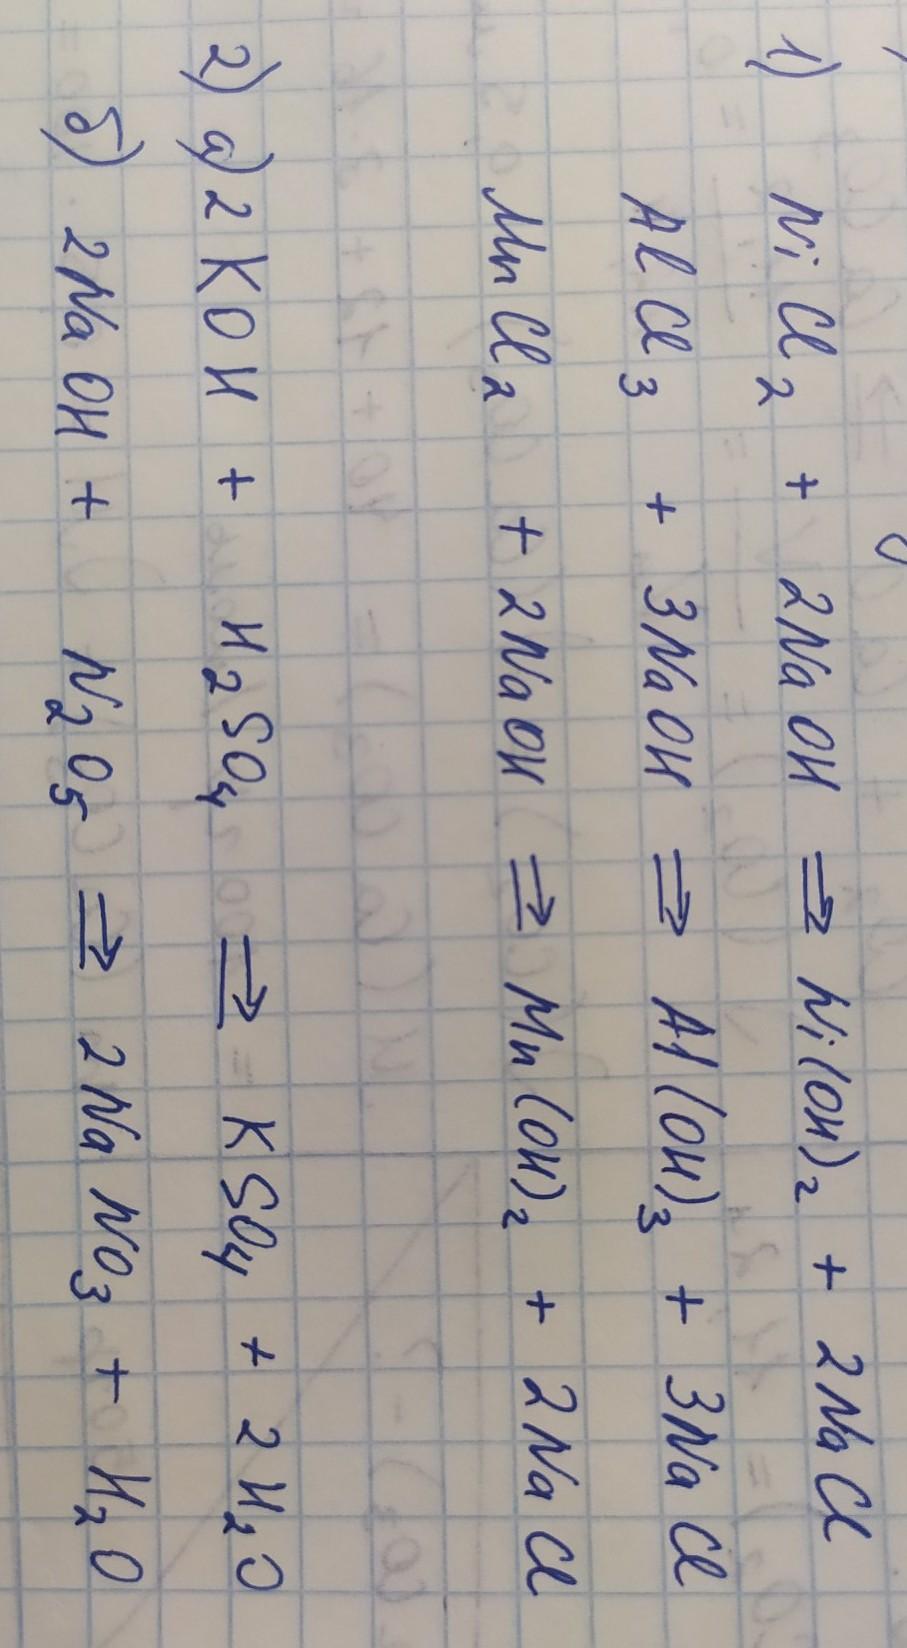 1) NiCl₂ + 2NaOH ⇒ Ni(OH)₂ + 2NaCl
AlCl₃ + 3NaOH ⇒ Al(OH)₃ + 3NaCl
MnCl₂ + 2NaOH ⇒ Mn(OH)₂ + 2NaCl
2) а) 2KOH + H₂SO₄ ⇒ KSO₄ + 2H₂O
б) 2NaOH + N₂O₅ ⇒ 2NaNO₃ + H₂O